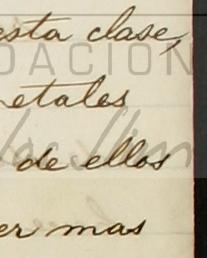 esta clase,
DACION
etales
de ellos
er mas